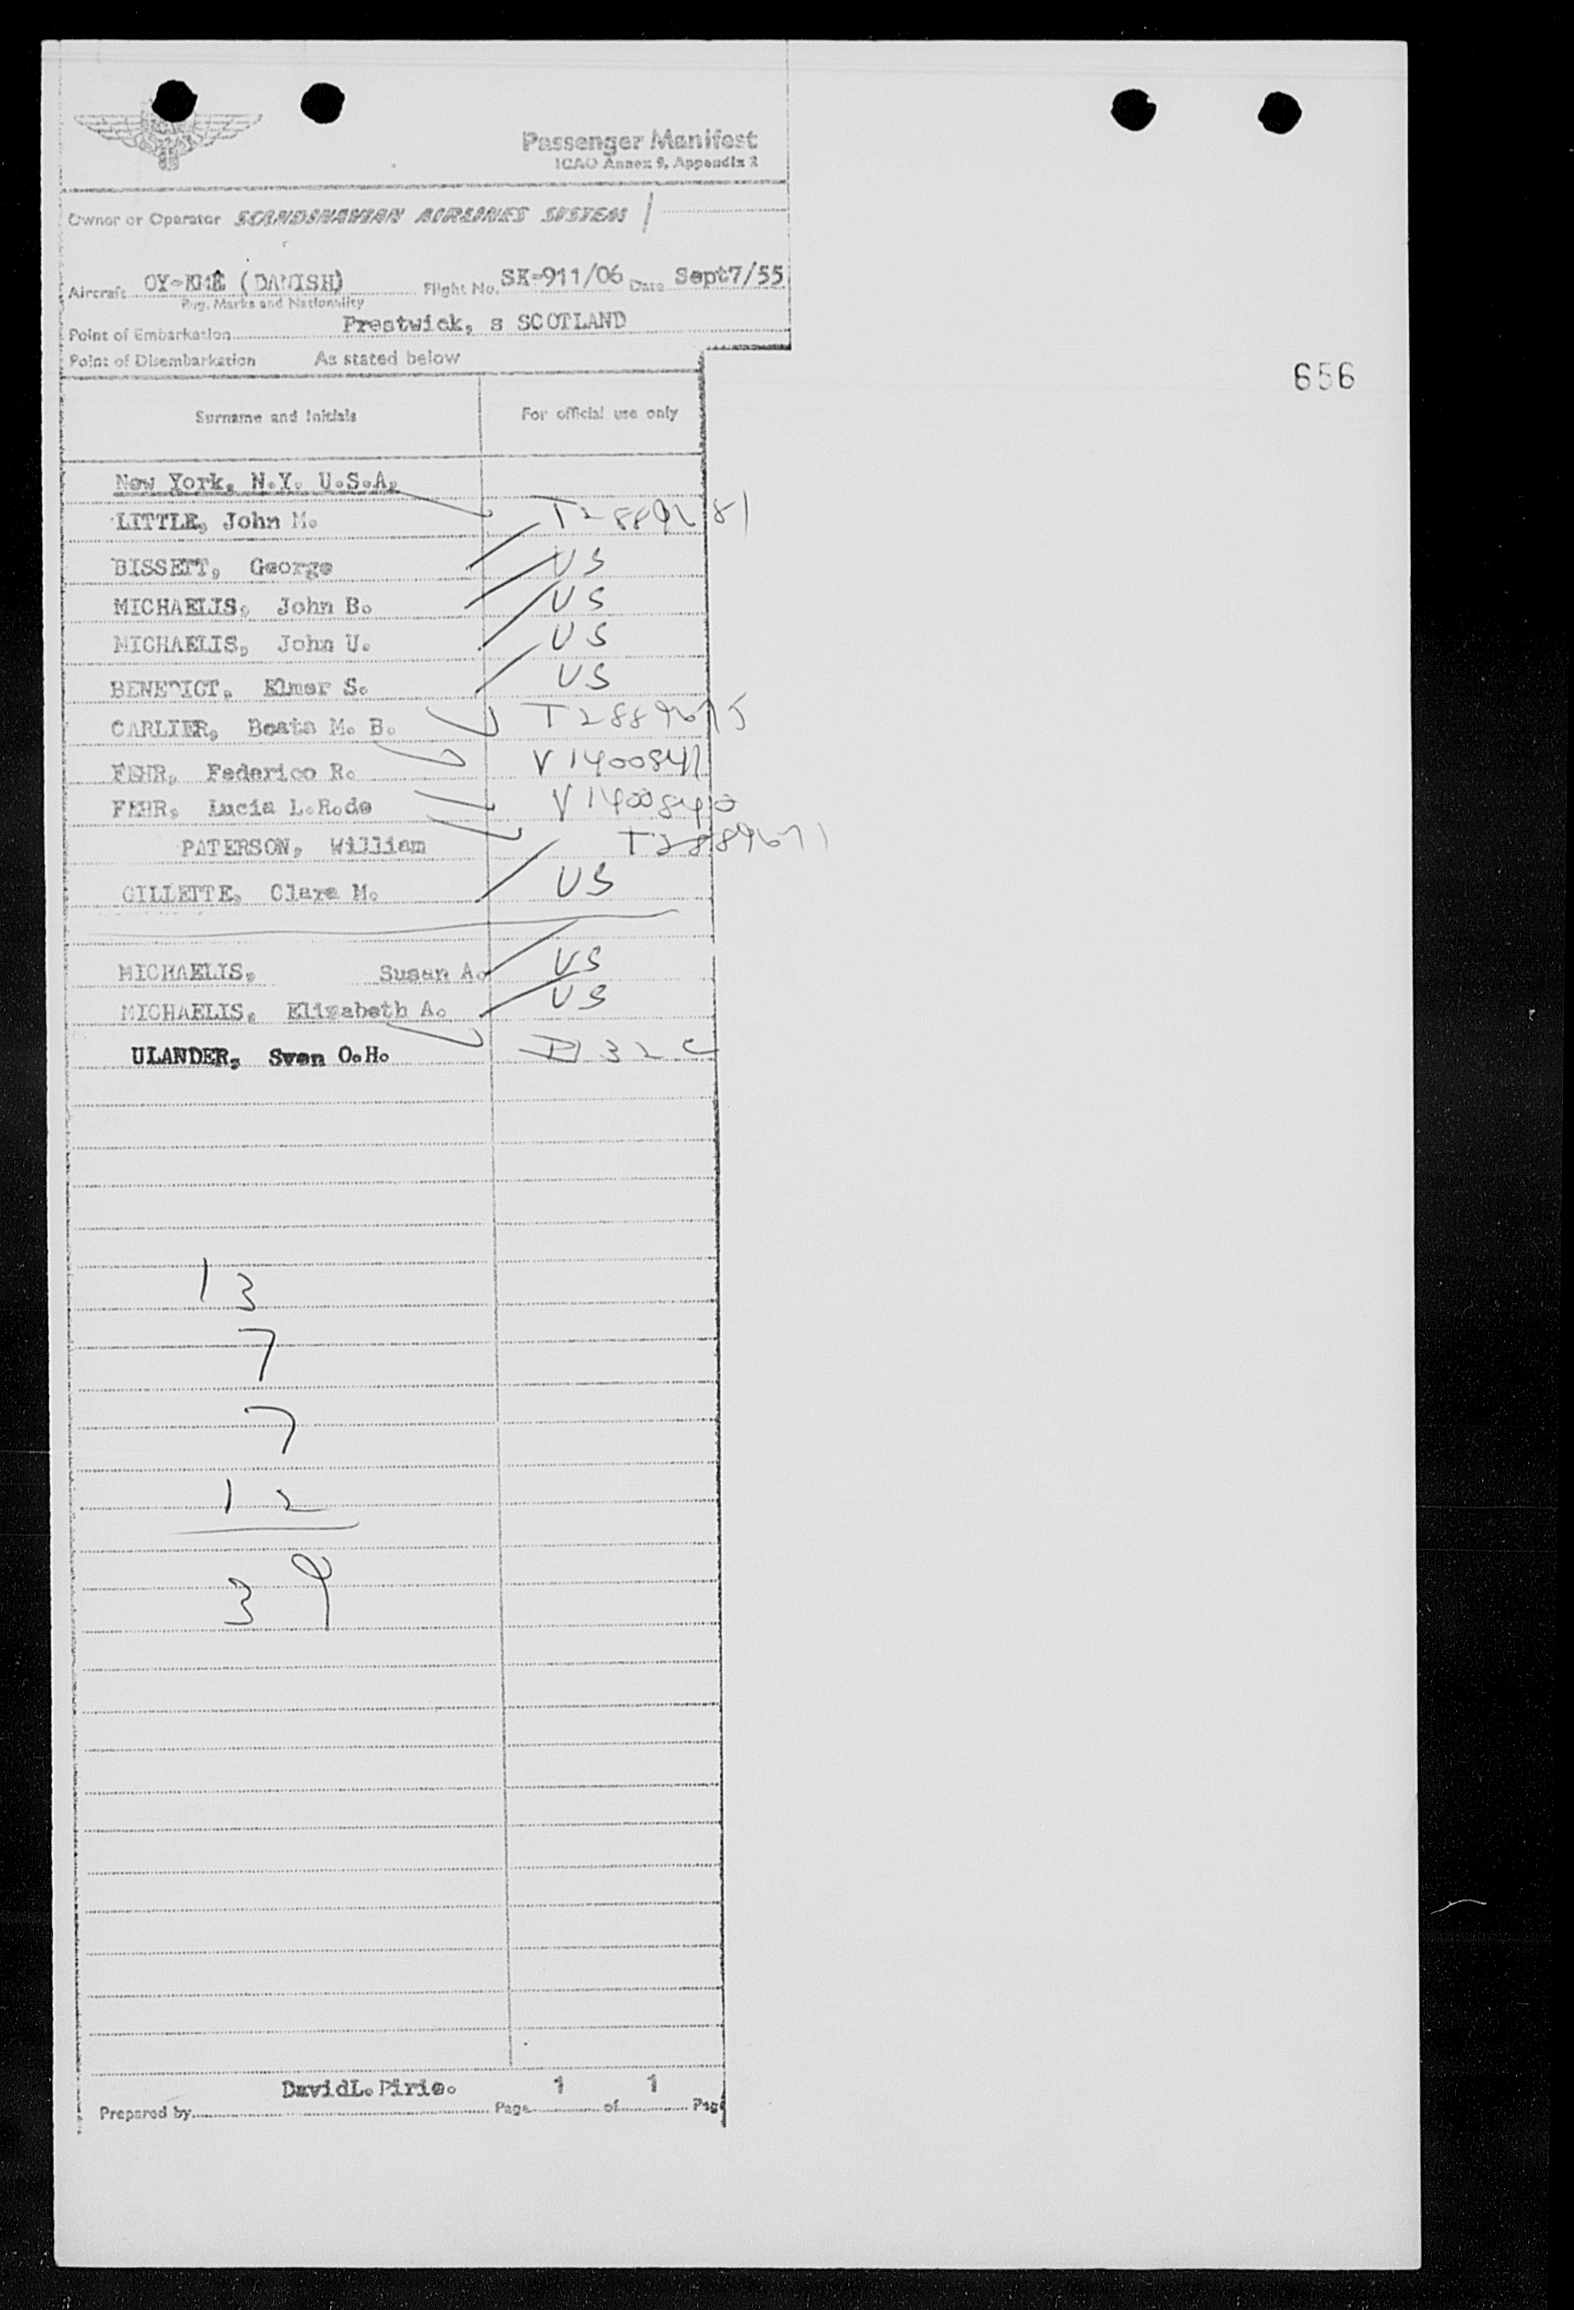 Passenger Manifest
ICAO Annex 9, Appendix 2
Owner or Operator SCANDINAVIAN AIRLINES SYSTEM
Aircraft OY-KME (DANISH) Flight No. SK-911/06 Date Sept7/55
Reg. Marks and Nationality
Point of Embarkation Prestwick, s SCOTLAND
Point of Disembarkation As stated below
656
Surname and Initials For official use only
New York, N.Y. U.S.A.
LITTLE, John M.
BISSETT, George US
MICHAELIS, John B. US
MICHAELIS, John U. US
BENEDICT, Elmer S. US
CARLIER, Beata M. B.
FEHR, Federico R. V1400841
FEHR, Lucia L.R.de V1400840
PATERSON, William
GILLETTE, Clara M. US
MICHAELIS, Susan A. US
MICHAELIS, Elizabeth A. US
ULANDER, Sven O.H.
13
7
7
12
39
DavidL. Pirie. 1 1
Prepared by Page of Pag